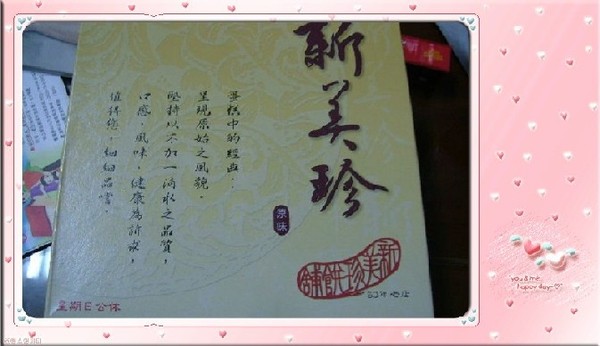 新美珍
原味
蛋糕中的經典‥
呈現原始之風貌。
堅持以不加一滴水之品質，
口感、風味、健康為訴求，
值得您‥細細品嘗。
新美珍餅舖
星期日公休
you & me
happy day~